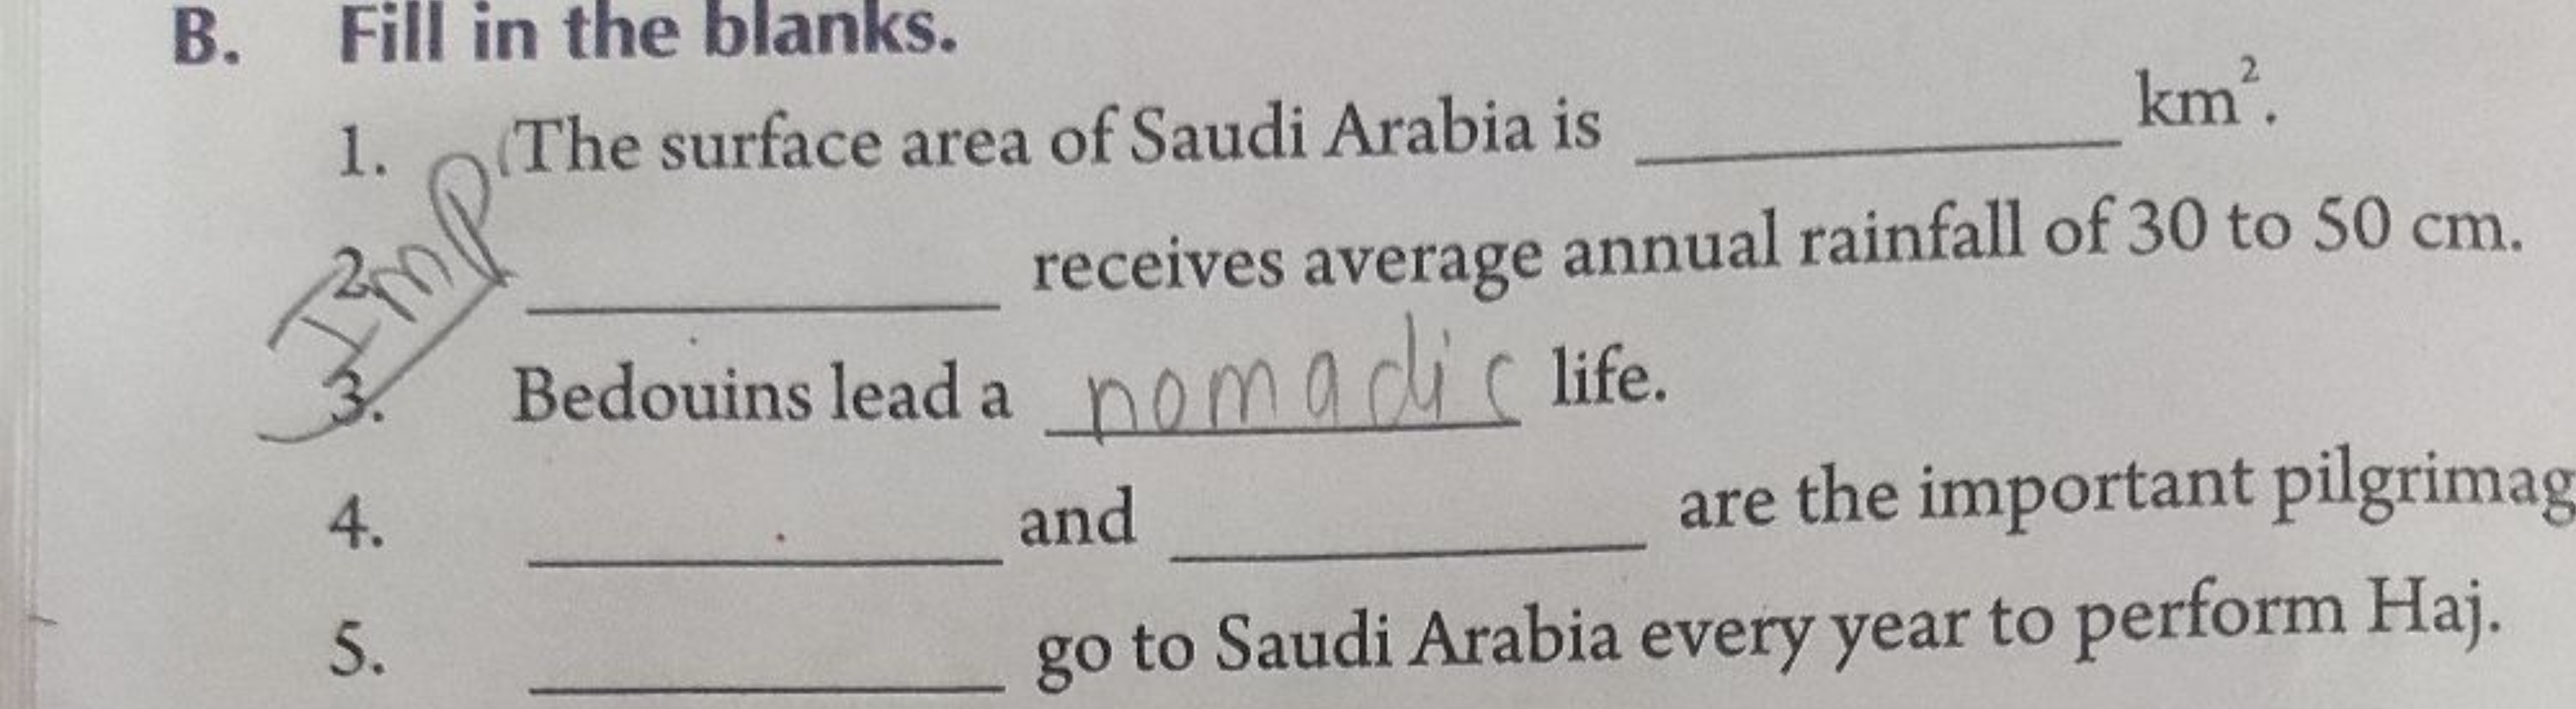 B. Fill in the blanks.
1. The surface area of Saudi Arabia is ____________ km².
Imp
2. ____________ receives average annual rainfall of 30 to 50 cm.
3. Bedouins lead a nomadic life.
4. ____________ and ____________ are the important pilgrimag
5. ____________ go to Saudi Arabia every year to perform Haj.